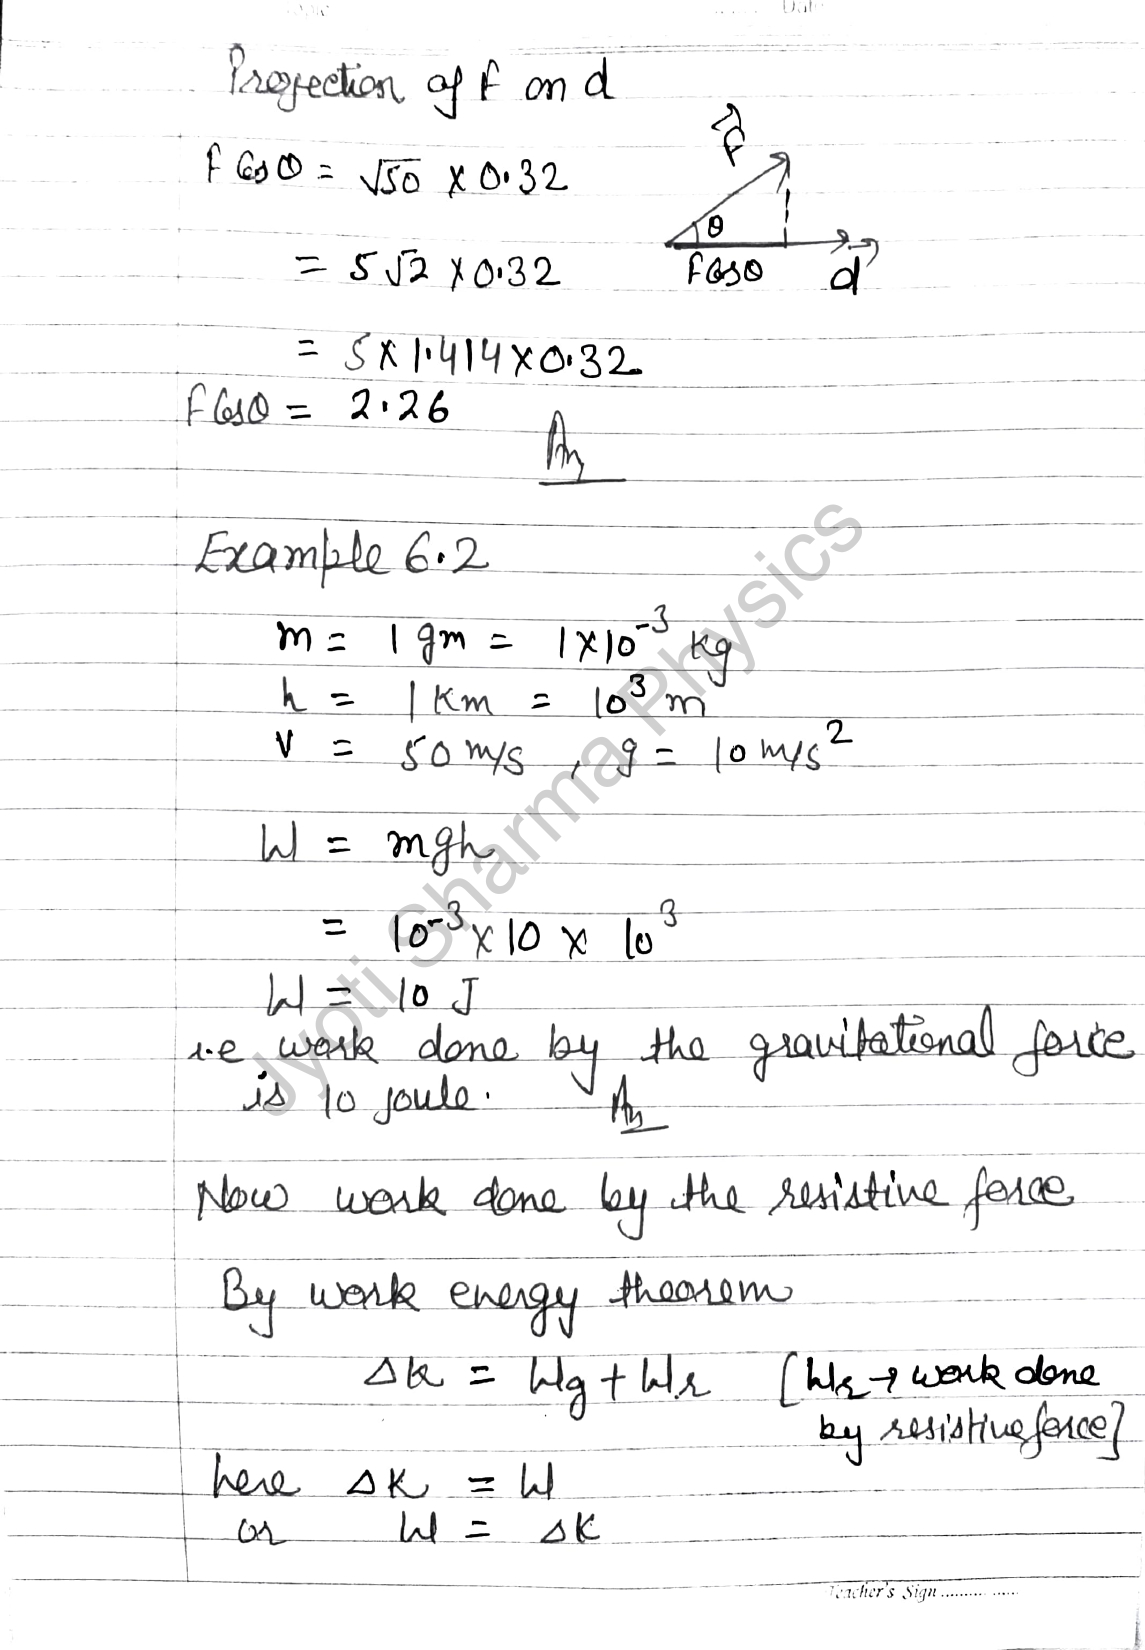 Topic
Date
Projection of F on d
F Cosθ = √50 × 0.32
= 5√2 × 0.32
= 5×1.414×0.32
FCosθ = 2.26
Ans
F
θ
FCosθ
d
Example 6.2
m = 1 gm = 1×10⁻³ kg
h = 1 Km = 10³ m
v = 50 m/s , g = 10 m/s²
W = mgh
= 10⁻³ × 10 × 10³
W = 10 J
i.e work done by the gravitational force
is 10 joule. Ans
Now work done by the resistive force
By work energy theorem
ΔK = Wg + Wr [Wr → work done
by resistive force]
here ΔK = W
or W = ΔK
Teacher's Sign ................
Jyoti Sharma Physics